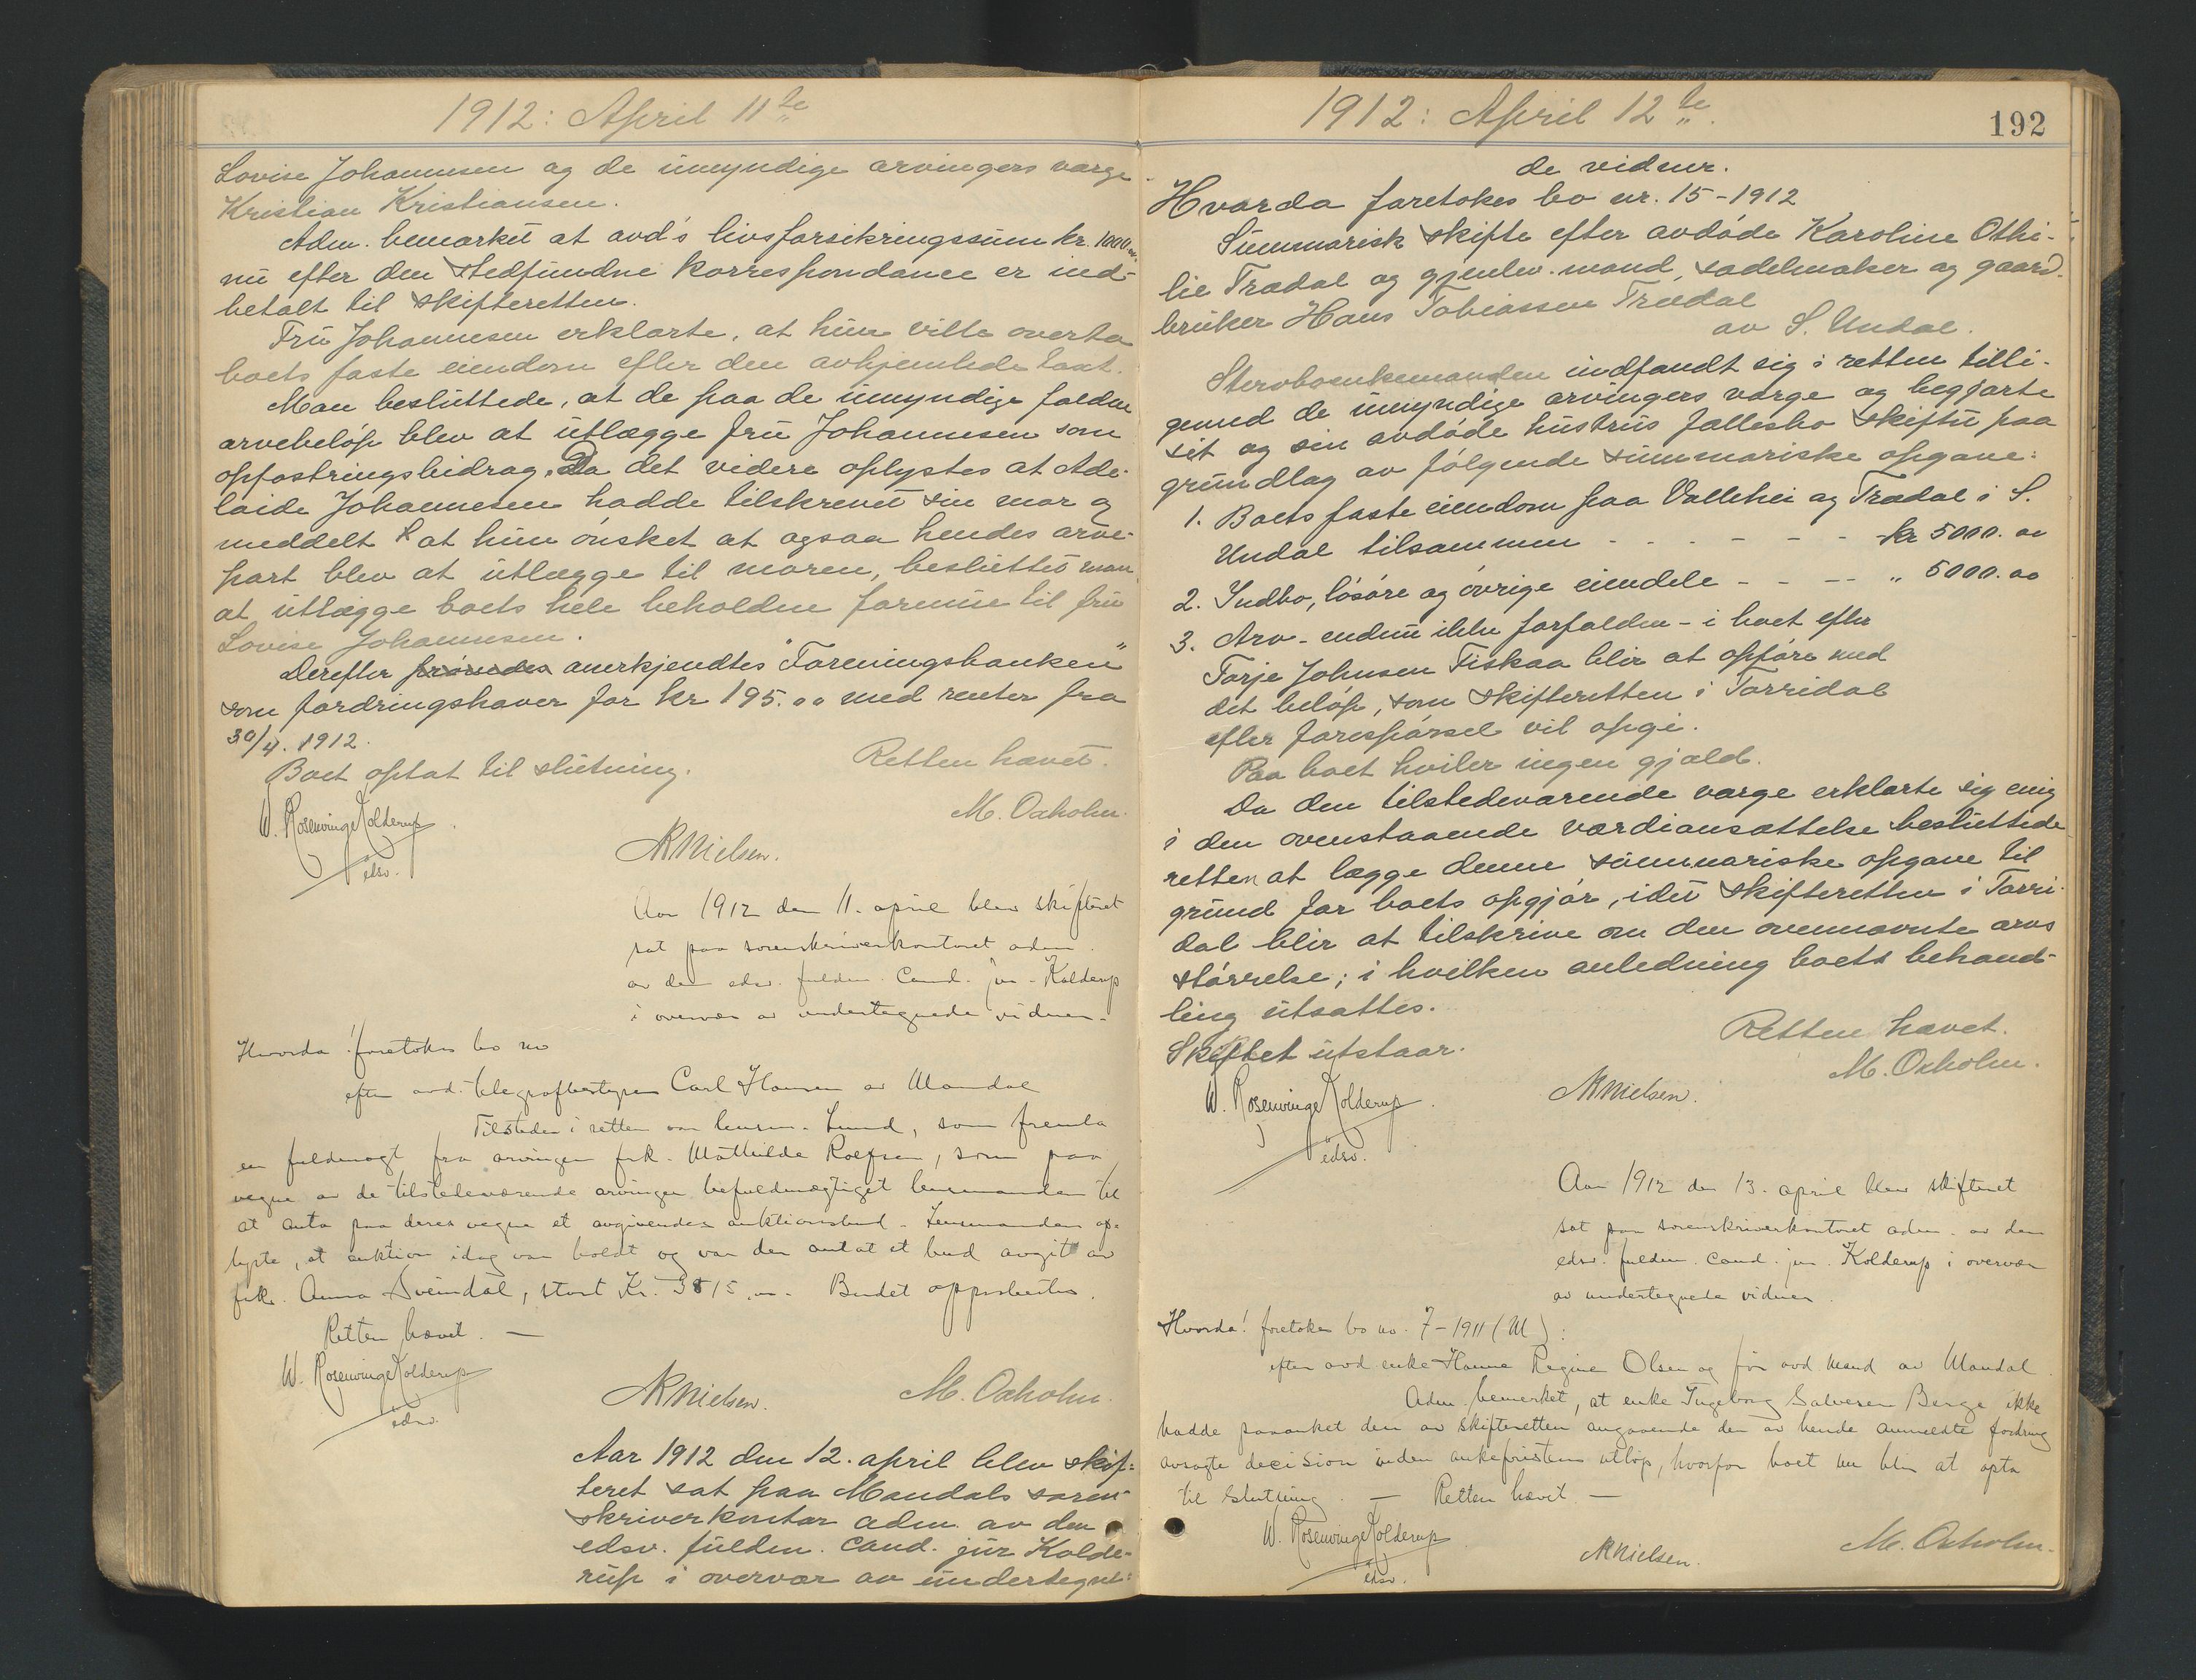 1912: April 11te
Lovise Johannesen og de umyndige arvingers værge
Kristian Kristiansen.
Adm. bemærket at avd's livsforsikringssum kr. 1000.00
nu efter den stedfundne korrespondance er ind-
betalt til skifteretten.
Fru Johannesen erklærte, at hun vilte overta
boets faste eiendom efter den avhjemlede taxt.
Man besluttede, at de paa de umyndige faldne
arvebeløp blev at utlægge fru Johannesen som
opfostringsbidrag. Da det videre oplystes at Ade-
laide Johannesen hadde tilskrevet sin mor og
meddelt at hun ønsket at ogsaa hendes arve-
part blev at utlægge til moren, besluttet man
at utlægge boets hele beholdne formue til fru
Lovise Johannesen.
Derefter anerkjendtes "Foreningsbanken"
som fordringshaver for kr 195.00 med renter fra
30/4. 1912.
Boet optat til slutning.
Retten hævet.
W. Rosenvinge Kolderup
edsv.
NNielsen.
M. Oxholm.
Aar 1912 den 11. april blev skifteret
sat paa sorenskriverkontoret adm.
av den edsv. fuldm. cand. jur. Kolderup
i overvær av undertegnede vidner.
Hvorda! foretokes bo no
efter avd. telegrafbestyrer Carl Hansen av Mandal
Tilstede i retten var lensm. Lund, som fremla
en fuldmagt fra arvingen frk. Mathilde Roefsen, som paa
vegne av de tilstedeværende arvinger befuldmægtiget lensmanden til
at anta paa deres vegne et avgivendes auktionsbud. Lensmanden op-
lyste, at auktion idag var holdt og var der antat et bud avgit av
frk. Anna Sveindal, stort Kr. 3815,00. Budet approbertes.
Retten hævet. —
W. Rosenvinge Kolderup
edsv.
NNielsen.
M. Oxholm.
Aar 1912 den 12. april blev skif-
teret sat paa Mandals soren-
skriverkontor adm. av den
edsv. fuldm. cand. jur Kolde-
rup i overvær av undertegne-
1912: April 12te.
192
de vidner.
Hvorda foretokes bo nr. 15-1912
Summarisk skifte efter avdøde Karoline Othi-
lie Trædal og gjenlev. mand, sadelmaker og gaard-
bruker Hans Tobiassen Trædal
av S. Undal.
Stervboenkemanden indfandt sig i retten tilli-
gemed de umyndige arvingers værge og begjærte
sit og sin avdøde hustrus fællesbo skiftet paa
grundlag av følgende summariske opgave:
1. Boets faste eiendom paa Vallehei og Trædal i S.
Undal tilsammen - - - - - - kr 5000.00
2. Indbo, løsøre og øvrige eiendele - - - - " 5000.00
3. Arv - endnu ikke forfalden - i boet efter
Tarje Johnsen Fiskaa blir at opføre med
det beløp, som skifteretten i Torridal
efter forespørsel vil opgi.
Paa boet hviler ingen gjæld.
Da den tilstedeværende værge erklærte sig enig
i den ovenstaaende værdiansættelse besluttede
retten at lægge denne summariske opgave til
grund for boets opgjør, idet skifteretten i Torri-
dal blir at tilskrive om den ovennævnte arvs
størrelse; i hvilken anledning boets behand-
ling utsattes.
Retten hævet.
Skiftet utstaar.
M. Oxholm.
W. Rosenvinge Kolderup.
edsv.
NNielsen.
Aar 1912 den 13. april blev skifteret
sat paa sorenskriverkontoret adm. av den
edsv. fuldm. cand. jur. Kolderup i overvær
av undertegnede vidner.
Hvorda! foretokes bo no. 7-1911 (M):
efter avd enke Hanne Regine Olsen og før avd mand av Mandal.
Adm. bemerket, at enke Ingeborg Salvesen Berge ikke
hadde paaanket den av skifteretten angaaende den av hende anmeldte fordring
avsagte decision inden ankefristens utløp, hvorfor boet nu blir at opta
til slutning. — Retten hævet —
W. Rosenvinge Kolderup
edsv.
NNielsen.
M. Oxholm.